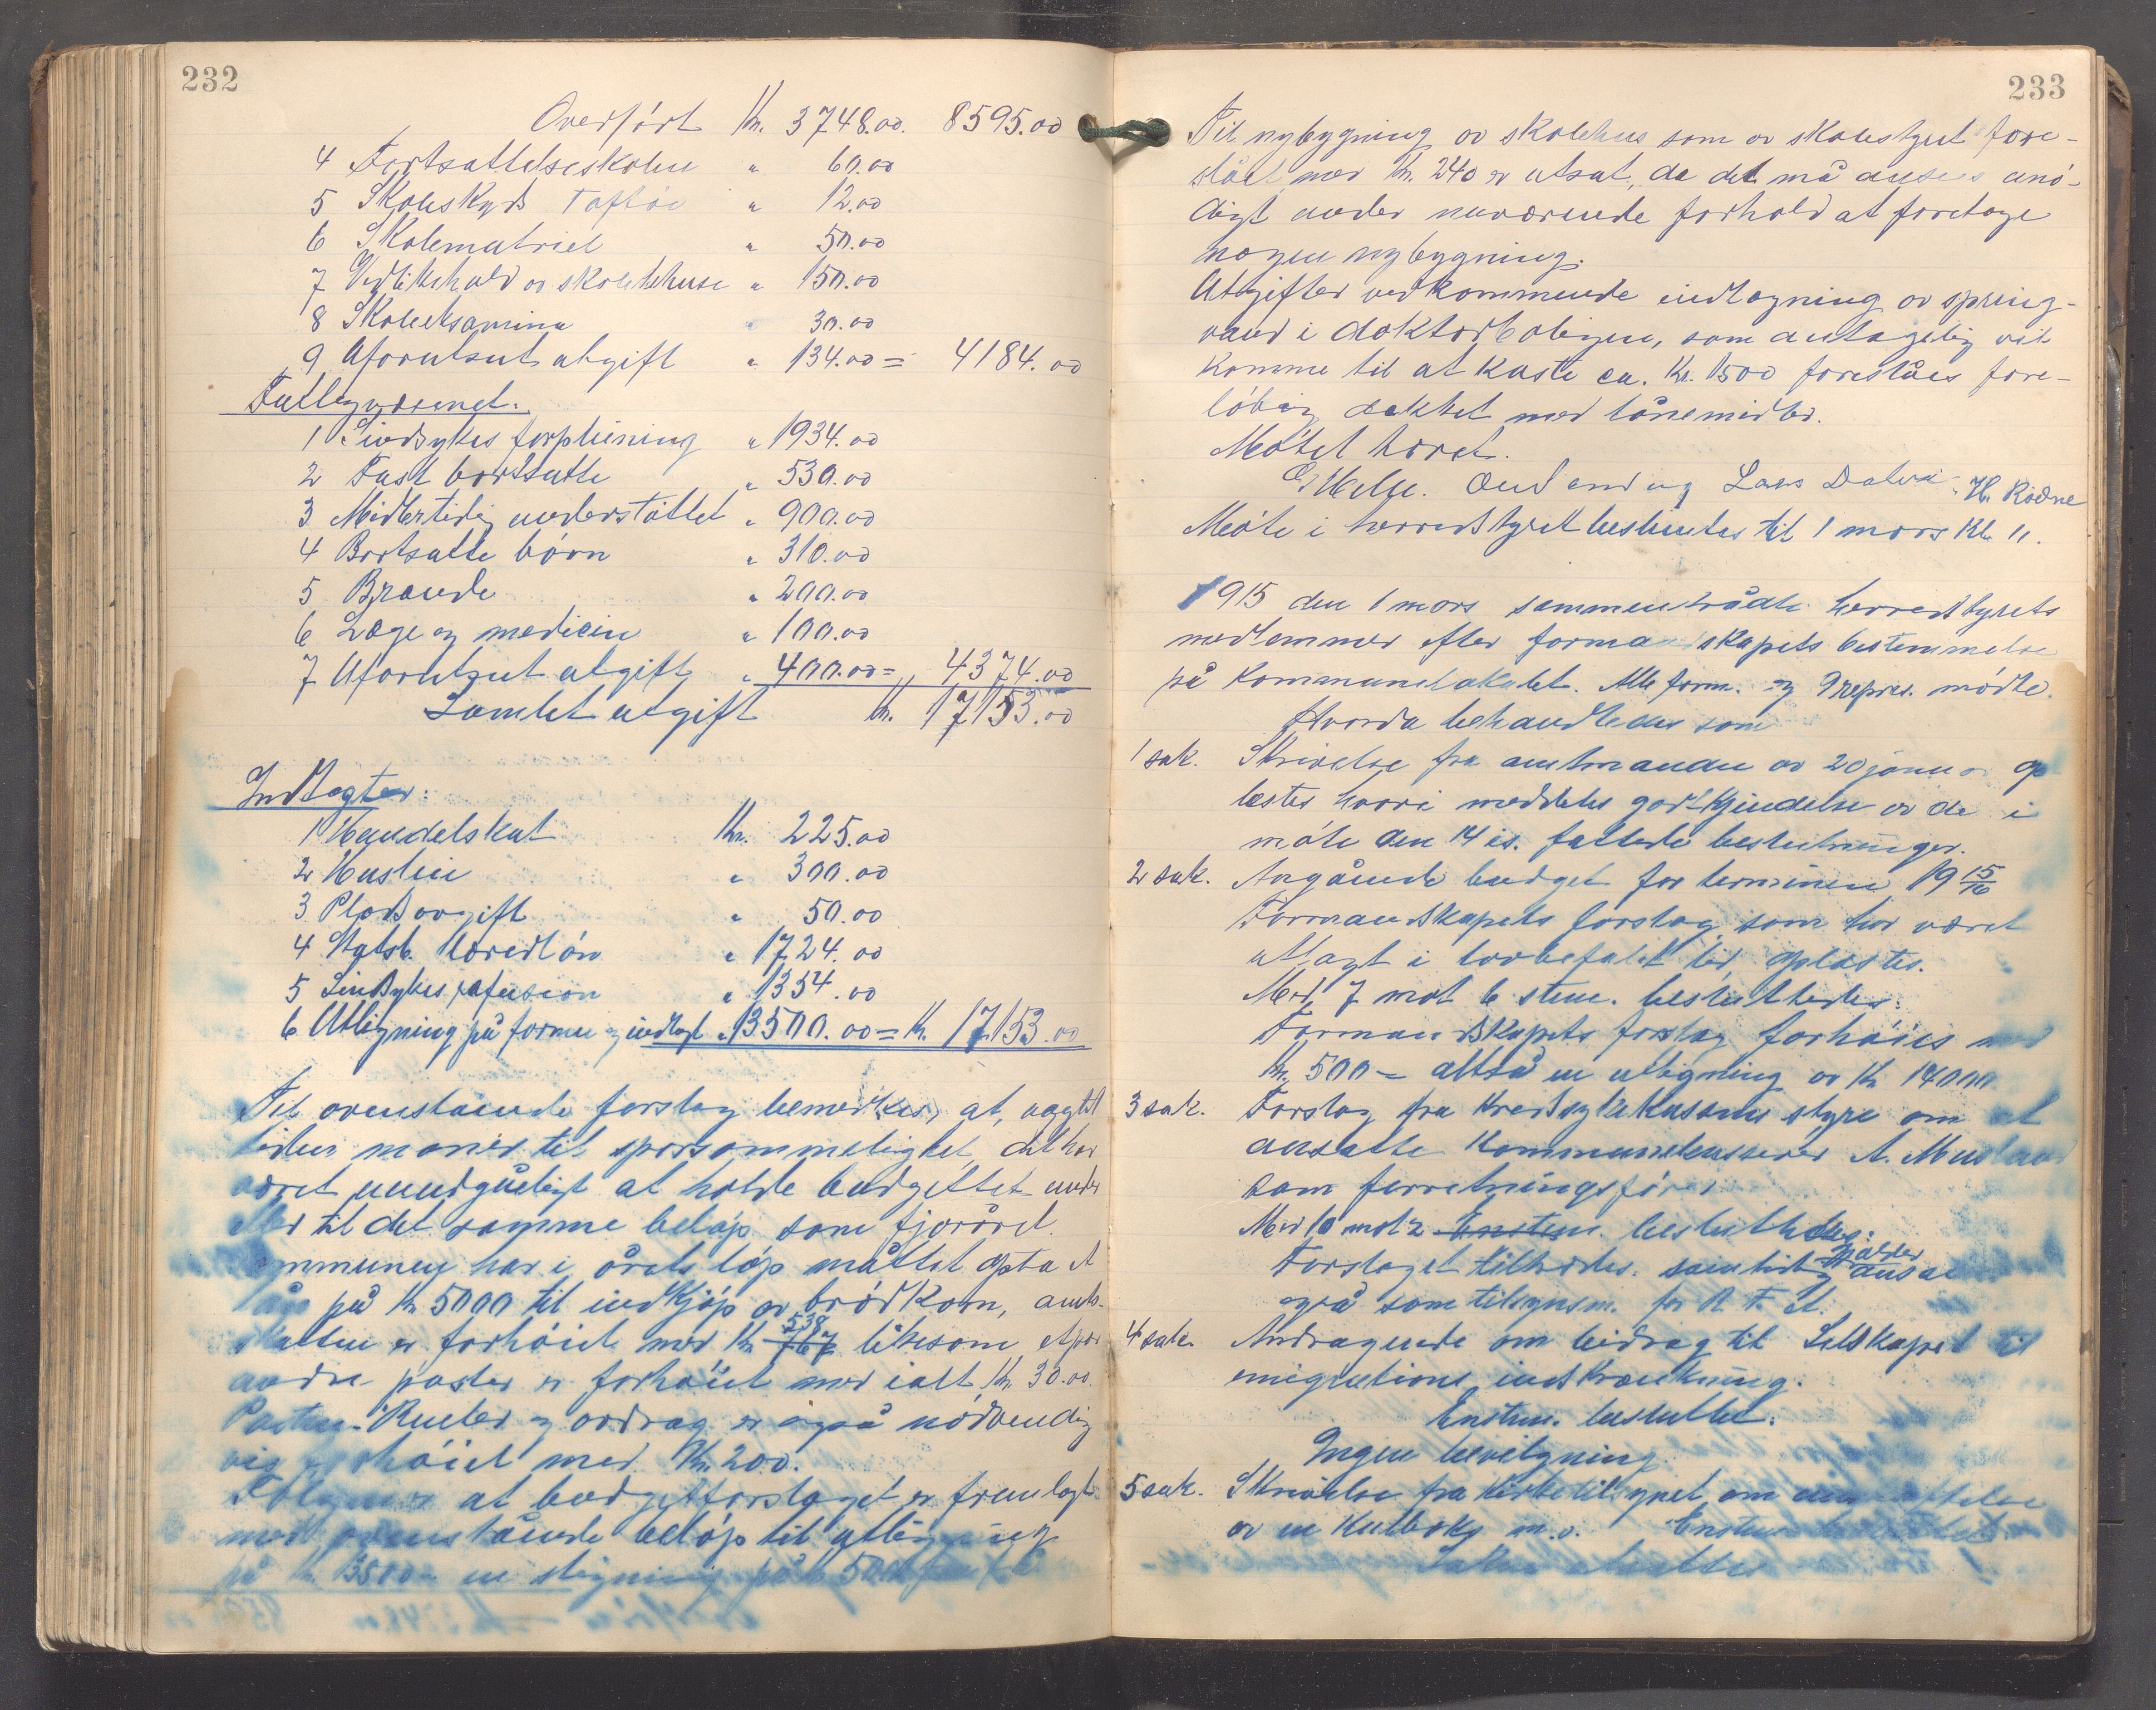 232
Overført Kr. 3748.00. 8595.00
4 Fortsættelseskolen " 60.00
5 Skoleskyds Toftöe " 12.00
6 Skolematriel " 50.00
7 Vedlikehold av skolehuse " 150.00
8 Skoleeksamina " 30.00
9 Uforutset utgift " 134.00 = 4184.00
Fattigvæsenet.
1 Sindsykes forpleining " 1934.00
2 Fast bortsatte " 530.00
3 Midlertidig understøttet " 900.00
4 Bortsatte børn " 310.00
5 Brænde " 200.00
6 Læge og medicin " 100.00
7 Uforutset utgift " 400.00 = " 4374.00
Samlet utgift Kr. 17153.00
Indtægter:
1 Handelskat Kr. 225.00
2 Husleie " 300.00
3 Pladsavgift " 50.00
4 Statsb. lærerløn " 1724.00
5 Sindsykes refusion " 1354.00
6 Utligning på formue og indtægt " 13500.00 = Kr. 17153.00
Til ovenstående forslag bemerkes, at, uagtet
tiden maner til sparsommelighet, det har
været uundgåeligt at holde budgettet under
eller til det samme beløp som fjoråret.
ommunen har i årets løp måttet opta et
lån på Kr 5000 til indkjøp av brødkorn, amts-
skatten er forhøiet med Kr 538 767 likesom et par
andre poster er forhøiet med ialt Kr. 30.00
Posten: Renter og avdrag er også nødvendig
vis forhøiet med Kr. 200.
Følgen er at budgetforslaget er fremlagt
med ovenstående beløp til utligning
på Kr. 13500 en stigning på Kr 500
233
Til nybygning av skolehus som av skolestyret fore-
slået med Kr. 240 er utsat, da det må ansees unø-
digt under nuværende forhold at foretage
nogen nybygning.
Utgifter vedkommende indlægning av spring-
vand i doktorboligen, som antagelig vil
komme til at koste ca. Kr. 1500 foreslåes fore-
løbig dækket med lånemidler.
Møtet hævet.
Lars Dalva H. Rødne
Møte i herredstyret besluttes til 1 mars Kl. 11.
1915 den 1 mars sammentrådte herredstyrets
medlemmer efter formandskapets bestemmelse
på Kommunelokalet. Alle form. og 9 repres. mødte.
Hvorda behandledes som
1 sak. Skrivelse fra amtmanden av 20 januar op
læstes hvori meddeles godkjendelse av de i
møte den 14 ds. fattede beslutninger.
2 sak. Angående budget for terminen 19 15/16
Formandskapets forslag som har været
utlagt i lovbefalet tid, oplæstes.
Med 7 mot 6 stem. besluttedes:
Formandskapets forslag forhøies med
Kr. 500 - altså en utligning av Kr 14000
3 sak. Forslag fra Kredssykekassens styre om at
ansætte Kommunekasserer A.
som forretningsfører
Med 10 mot 2 Enstem. besluttedes:
Forslaget tiltrædes. samtidig
også som tilsynsm. for R. F. A.
4 sak. Andragende om bidrag til Selskapet til
emigrations indskrænkning.
Enstem. besluttet:
Ingen bevilgning
5 sak. Skrivelse fra Kirketilsynet om
av en Kulboks m.v. Enstem
Saken utsættes